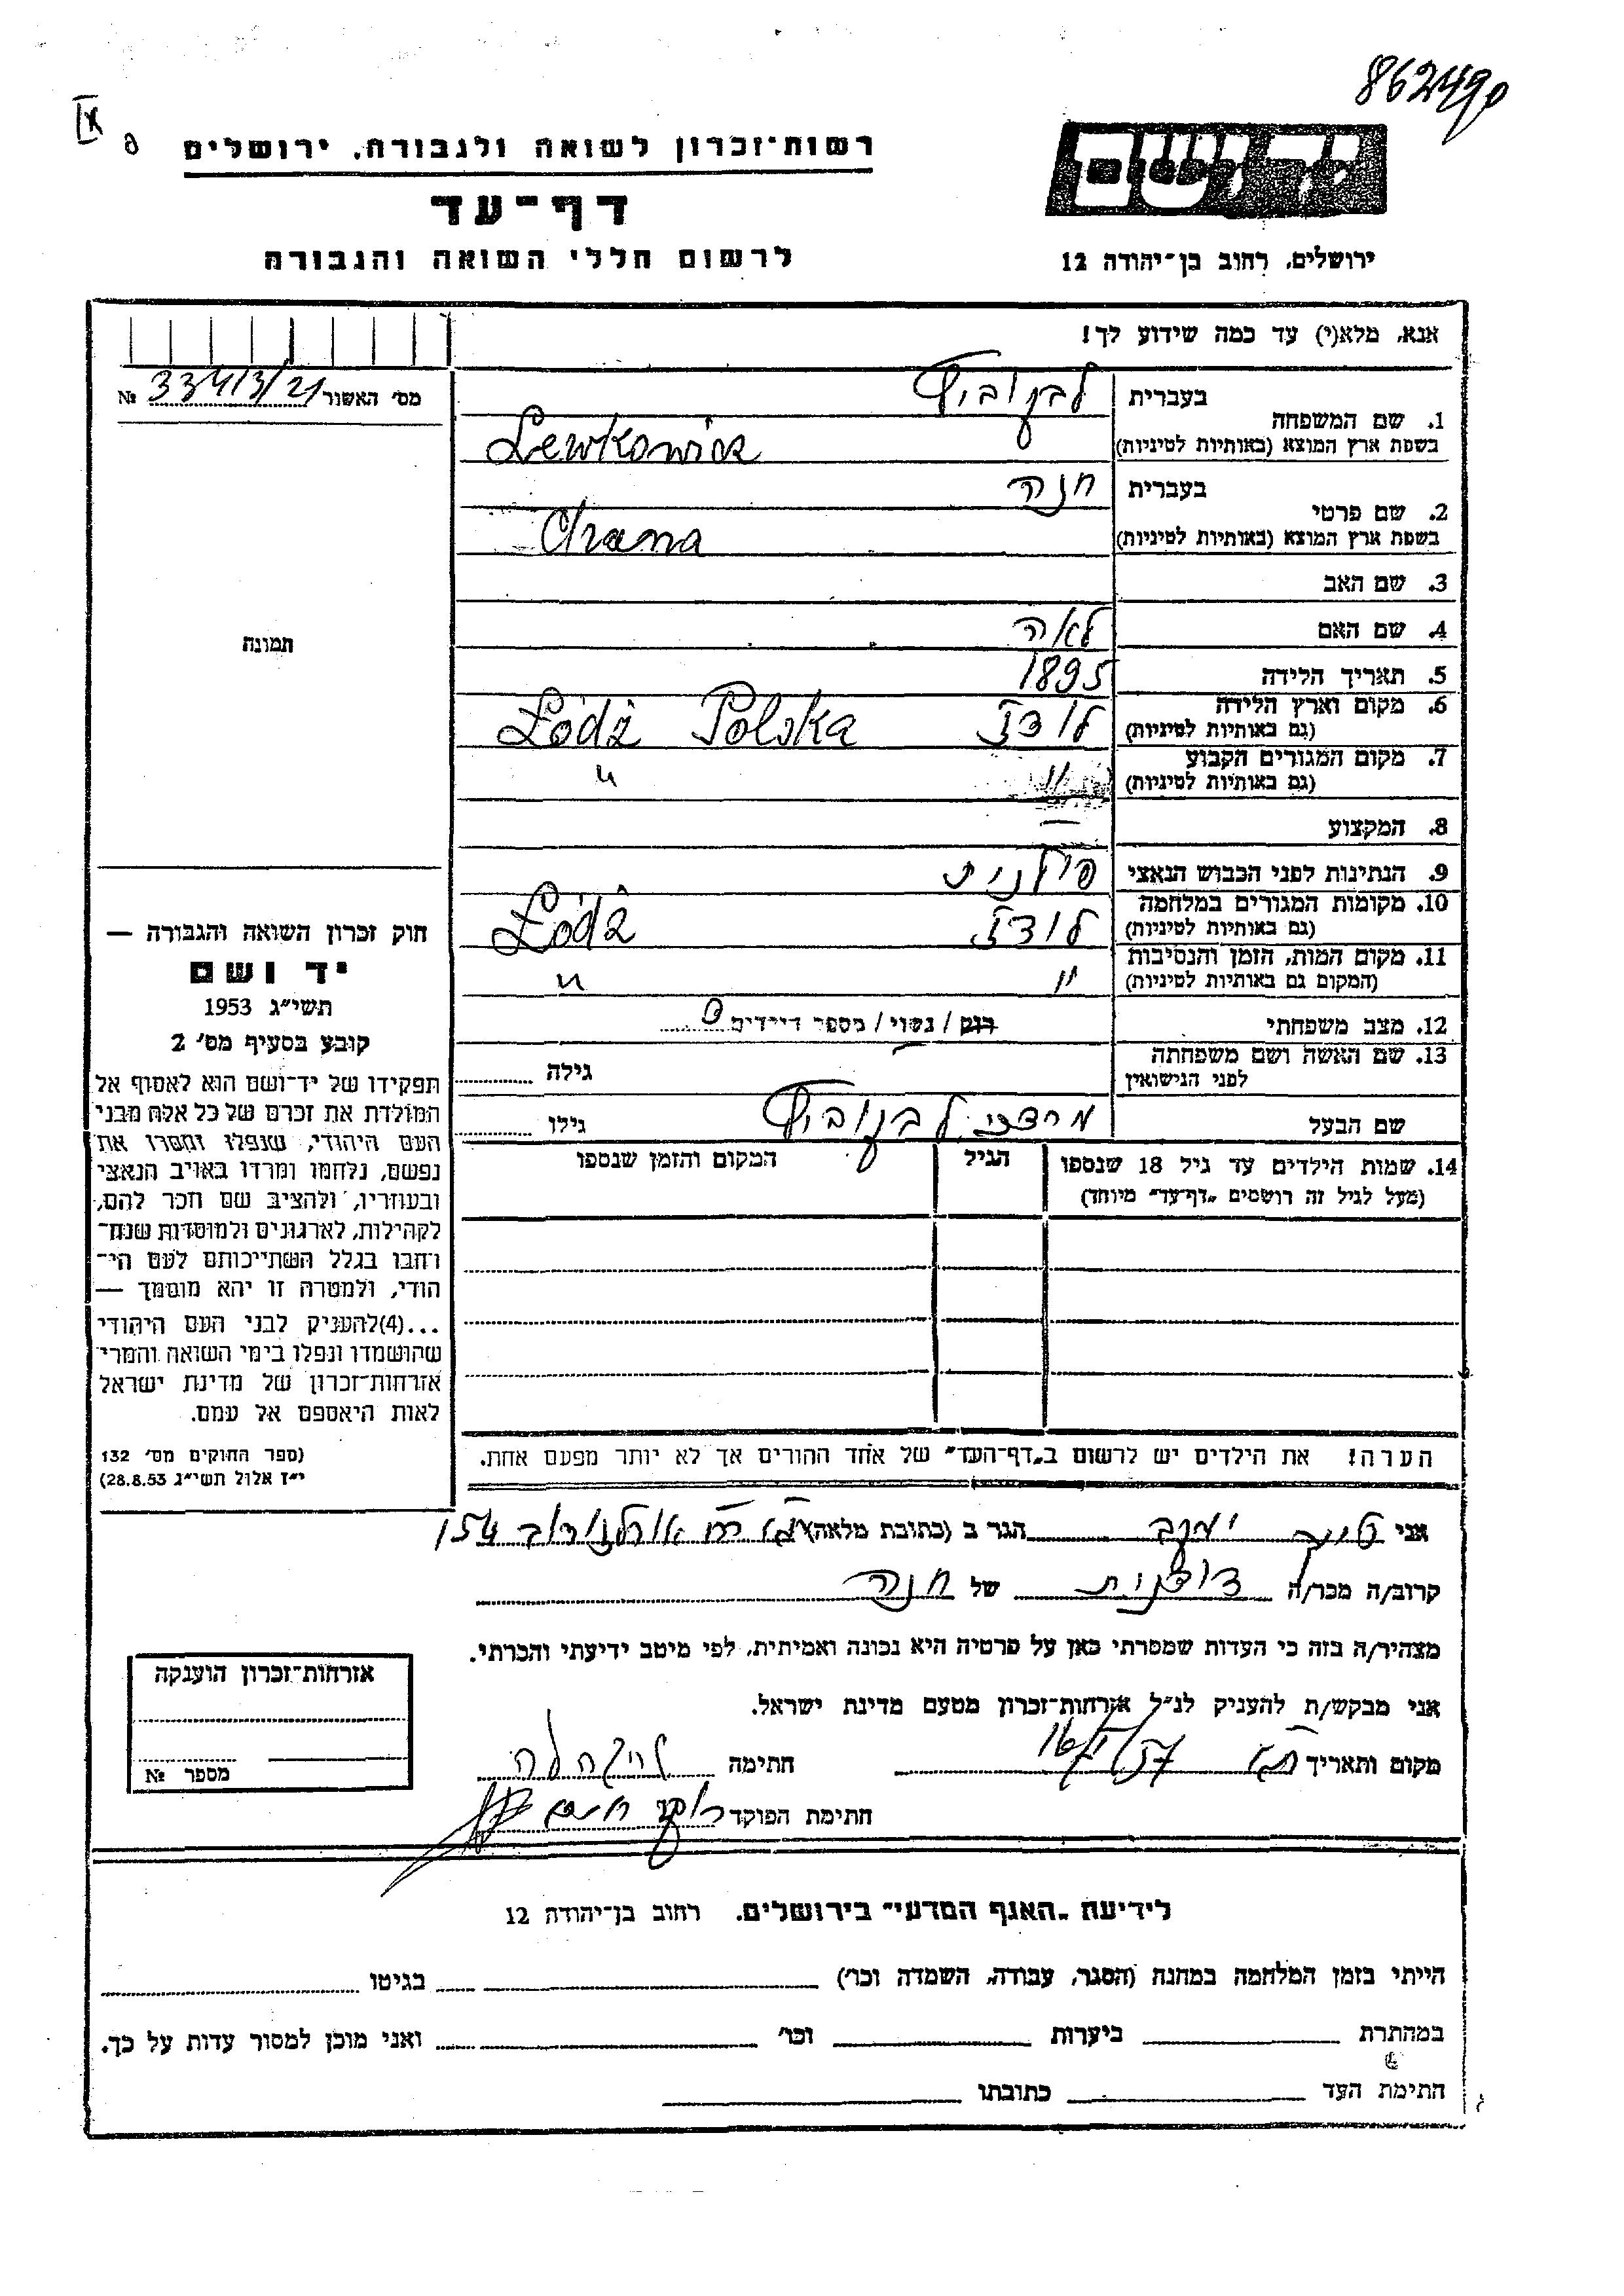 862490
רשות־זכרון לשואה ולגבורה, ירושלים
יד ושם
דף־עד
לרשום חללי השואה והגבורה
ירושלים, רחוב בן־יהודה 12
אנא, מלא(י) עד כמה שידוע לך!
מס׳ האשור № 334/3/21
1. שם המשפחה בעברית לבקוביץ
בשפת ארץ המוצא (באותיות לטיניות) Lewkowicz
2. שם פרטי בעברית חנה
בשפת ארץ המוצא (באותיות לטיניות) Chana
3. שם האב
4. שם האם לאה
תמונה
5. תאריך הלידה 1895
6. מקום וארץ הלידה (גם באותיות לטיניות) לודז Łódź Polska
7. מקום המגורים הקבוע (גם באותיות לטיניות) " "
8. המקצוע —
9. הנתינות לפני הכבוש הנאצי פולנית
10. מקומות המגורים במלחמה (גם באותיות לטיניות) לודז Łódź
11. מקום המות, הזמן והנסיבות (המקום גם באותיות לטיניות) " "
12. מצב משפחתי רוק / נשוי / מספר הילדים
13. שם האשה ושם משפחתה לפני הנישואין גילה
שם הבעל מרדכי לבקוביץ גילו
14. שמות הילדים עד גיל 18 שנספו הגיל המקום והזמן שנספו
(מעל לגיל זה רושמים „דף־עד״ מיוחד)
חוק זכרון השואה והגבורה —
יד ושם
תשי״ג 1953
קובע בסעיף מס׳ 2
תפקידו של יד־ושם הוא לאסוף אל
המולדת את זכרם של כל אלה מבני
העם היהודי, שנפלו ומסרו את
נפשם, נלחמו ומרדו באויב הנאצי
ובעוזריו, ולהציב שם וזכר להם,
לקהילות, לארגונים ולמוסדות שנח־
רבו בגלל השתייכותם לעם הי־
הודי, ולמטרה זו יהא מוסמך —
...(4)להעניק לבני העם היהודי
שהושמדו ונפלו בימי השואה והמרי
אזרחות־זכרון של מדינת ישראל
לאות היאספם אל עמם.
(ספר החוקים מס׳ 132
י״ז אלול תשי״ג 28.8.53)
הערה! את הילדים יש לרשום ב„דף־העד״ של אחד ההורים אך לא יותר מפעם אחת.
אני יעקב הגר ב (כתובת מלאה) ת״א ארלוזורוב 154
קרוב/ה מכר/ה של חנה
מצהיר/ה בזה כי העדות שמסרתי כאן על פרטיה היא נכונה ואמיתית, לפי מיטב ידיעתי והכרתי.
אני מבקש/ת להעניק לנ״ל אזרחות־זכרון מטעם מדינת ישראל.
מקום ותאריך ת״א חתימה
חתימת הפוקד
אזרחות־זכרון הוענקה
מספר №
לידיעת „האגף המדעי״ בירושלים, רחוב בן־יהודה 12
הייתי בזמן המלחמה במחנה (הסגר, עבודה, השמדה וכו׳) בגיטו
במחתרת ביערות וכו׳ ואני מוכן למסור עדות על כך.
חתימת העד כתובתו